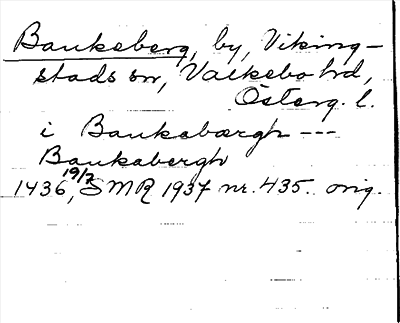 Bankeberg, by, Viking-
stads sn, Valkebo hd,
Österg. l.
i Bankebærgh ---
Bankabergh
1436 19/2, SMR 1937 nr. 435. orig.